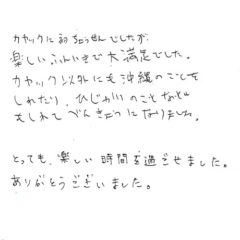 カヤックに初ちょうせんでしたが、
楽しいふんいきで大満足でした。
カヤック以外にも沖縄のことを
しれたり、ひじゃ川のことなども
しれてべんきょうになりました。
とっても、楽しい時間を過ごせました。
ありがとうございました。